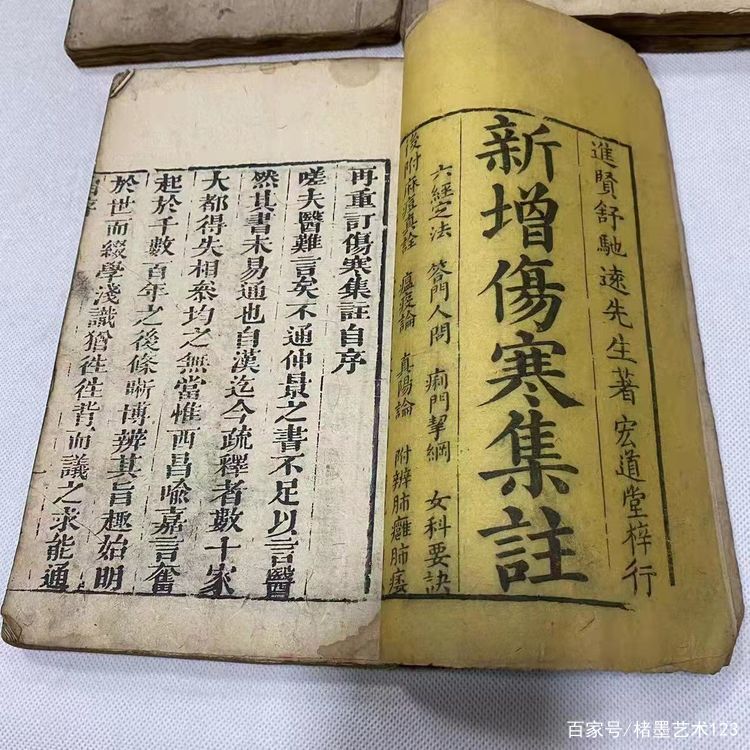 進賢舒馳遠先生著 宏道堂梓行
新增傷寒集註
六經定法 答門人問 痢門挈綱 女科要訣
後附麻疹真詮 瘟疫論 真陽論 附辨肺癰肺痿
再重訂傷寒集註自序
嗟夫醫難言矣不通仲景之書不足以言醫
然其書未易通也自漢迄今疏釋者數十家
大都得失相叅均之無當惟西昌喻嘉言奮
起於千數百年之後條晰博辨其旨趣始明
於世而綴學淺識猶徃徃背而議之求能通
百家号/楮墨艺术123